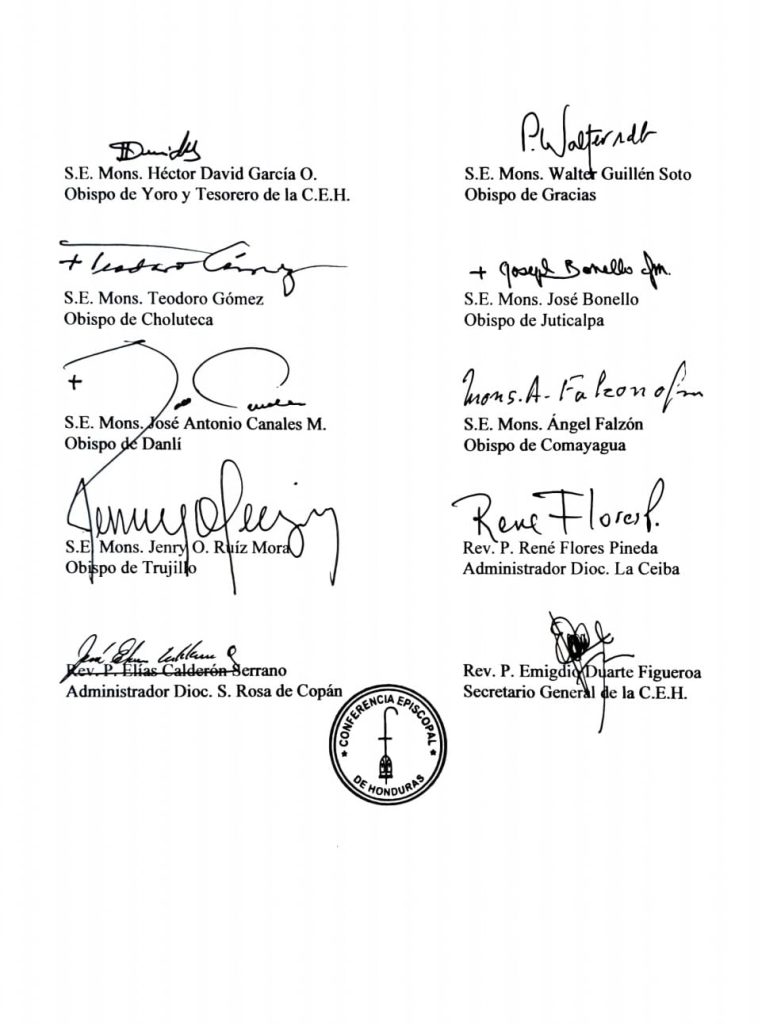 S.E. Mons. Héctor David García O.
Obispo de Yoro y Tesorero de la C.E.H.
P. Walter sdb
S.E. Mons. Walter Guillén Soto
Obispo de Gracias
+ Teodoro Gómez
S.E. Mons. Teodoro Gómez
Obispo de Choluteca
+ Joseph Bonello ofm.
S.E. Mons. José Bonello
Obispo de Juticalpa
+
S.E. Mons. José Antonio Canales M.
Obispo de Danlí
Mons. A. Falzon ofm
S.E. Mons. Ángel Falzón
Obispo de Comayagua
S.E. Mons. Jenry O. Ruíz Mora
Obispo de Trujillo
René Flores P.
Rev. P. René Flores Pineda
Administrador Dioc. La Ceiba
Rev. P. Elías Calderón Serrano
Administrador Dioc. S. Rosa de Copán
Rev. P. Emigdio Duarte Figueroa
Secretario General de la C.E.H.
CONFERENCIA EPISCOPAL
DE HONDURAS